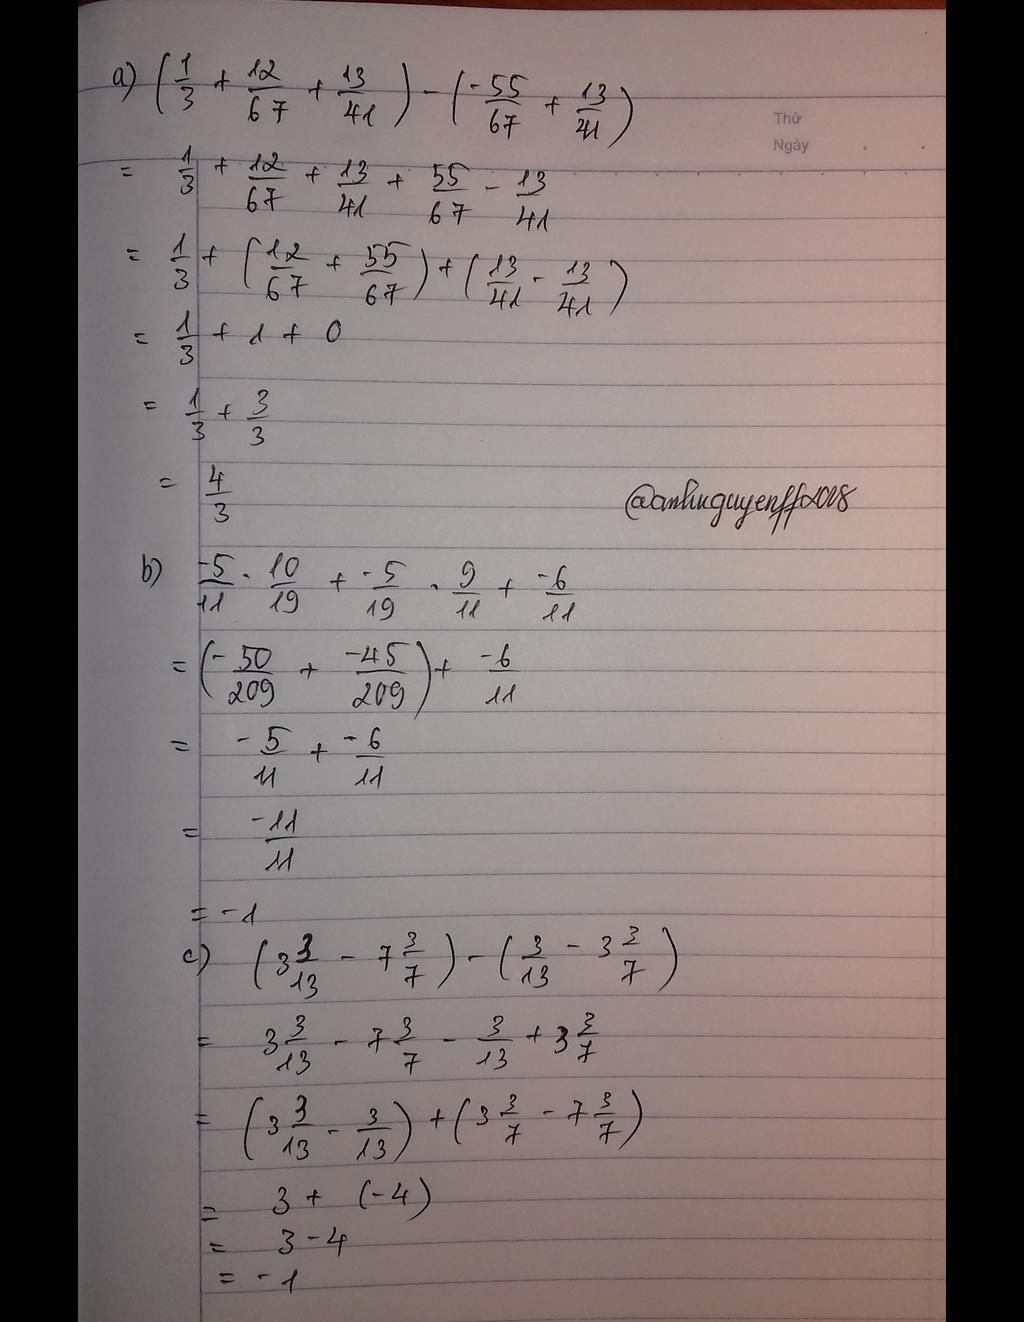 a) (1/3 + 12/67 + 13/41) - (-55/67 + 13/41)
Thứ
Ngày
= 1/3 + 12/67 + 13/41 + 55/67 - 13/41
= 1/3 + (12/67 + 55/67) + (13/41 - 13/41)
= 1/3 + 1 + 0
= 1/3 + 3/3
= 4/3
@anhnguyenff2008
b) -5/11 . 10/19 + -5/19 . 9/11 + -6/11
= (-50/209 + -45/209) + -6/11
= -5/11 + -6/11
= -11/11
= -1
c) (3 3/13 - 7 3/7) - (3/13 - 3 3/7)
= 3 3/13 - 7 3/7 - 3/13 + 3 3/7
= (3 3/13 - 3/13) + (3 3/7 - 7 3/7)
= 3 + (-4)
= 3 - 4
= -1